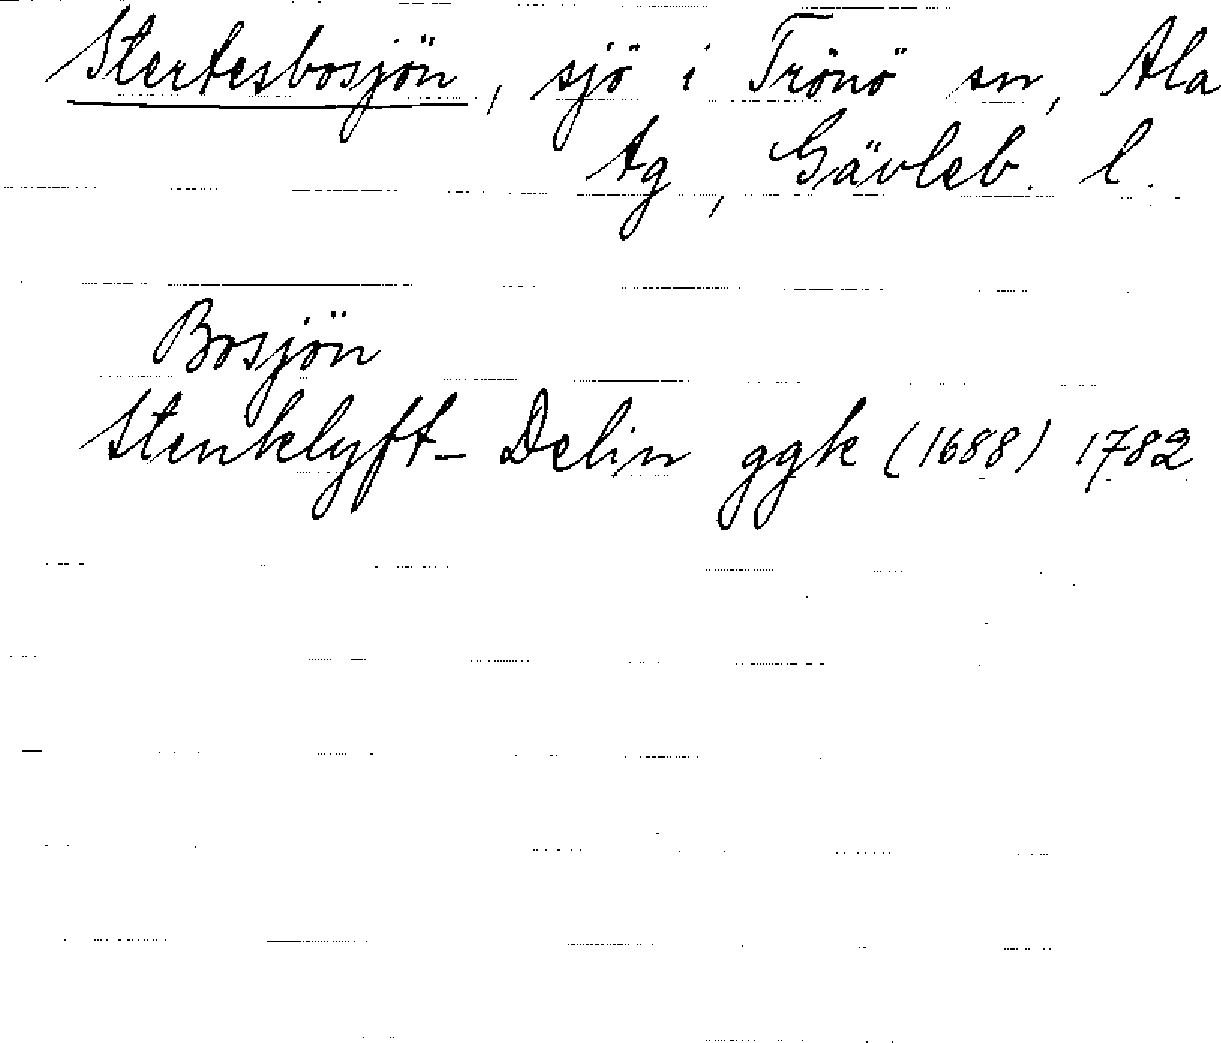 Stertesbosjön, sjö i Trönö sn, Ala
tg, Gävleb. l.
Bosjön
Stenklyft- Delin ggk (1688) 1782